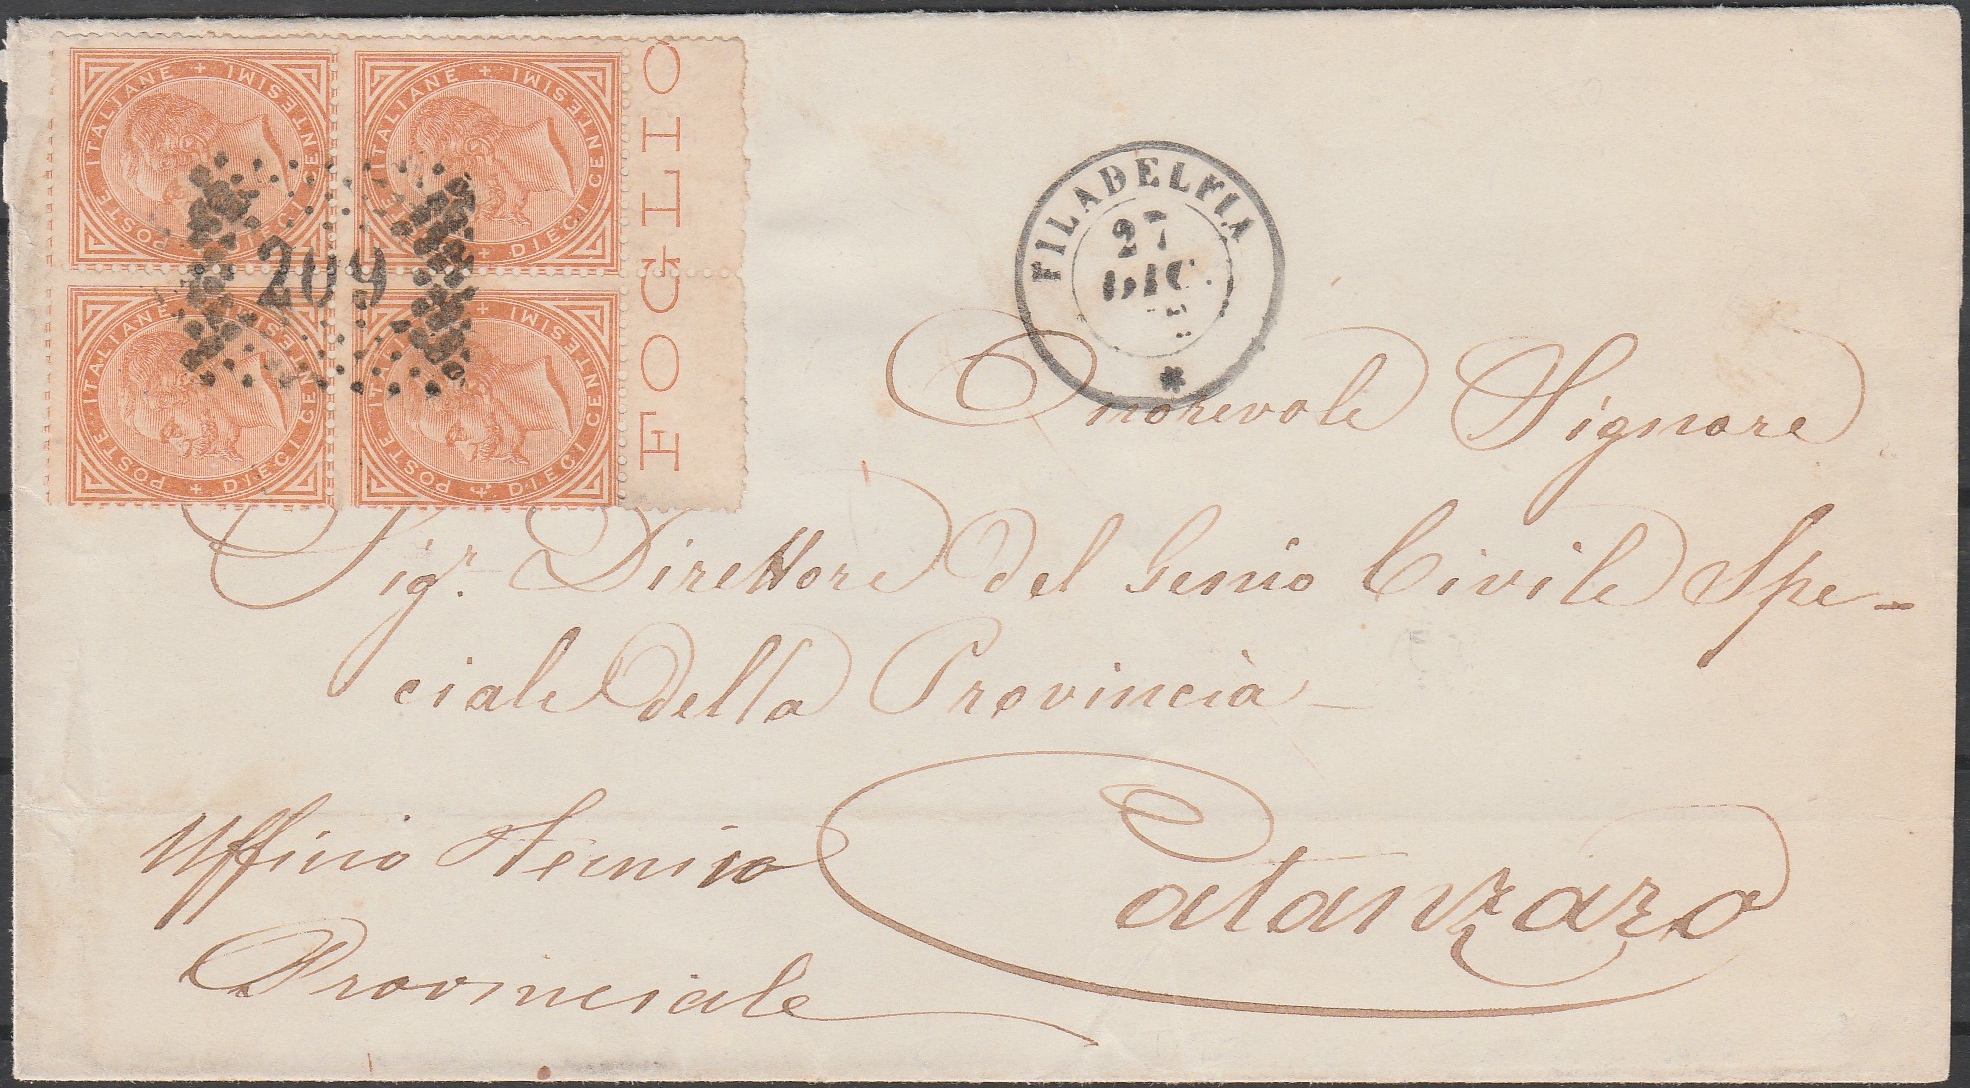 POSTE ITALIANE + DIECI CENTESIMI +
POSTE ITALIANE + DIECI CENTESIMI +
POSTE ITALIANE + DIECI CENTESIMI
POSTE ITALIANE + DIECI CENTESIMI
FOGLIO
209
FILADELFIA
27
DIC
Onorevole Signore
Sigr. Direttore del Genio Civile Spe-
ciale della Provincia
Catanzaro
Ufficio Tecnico
Provinciale